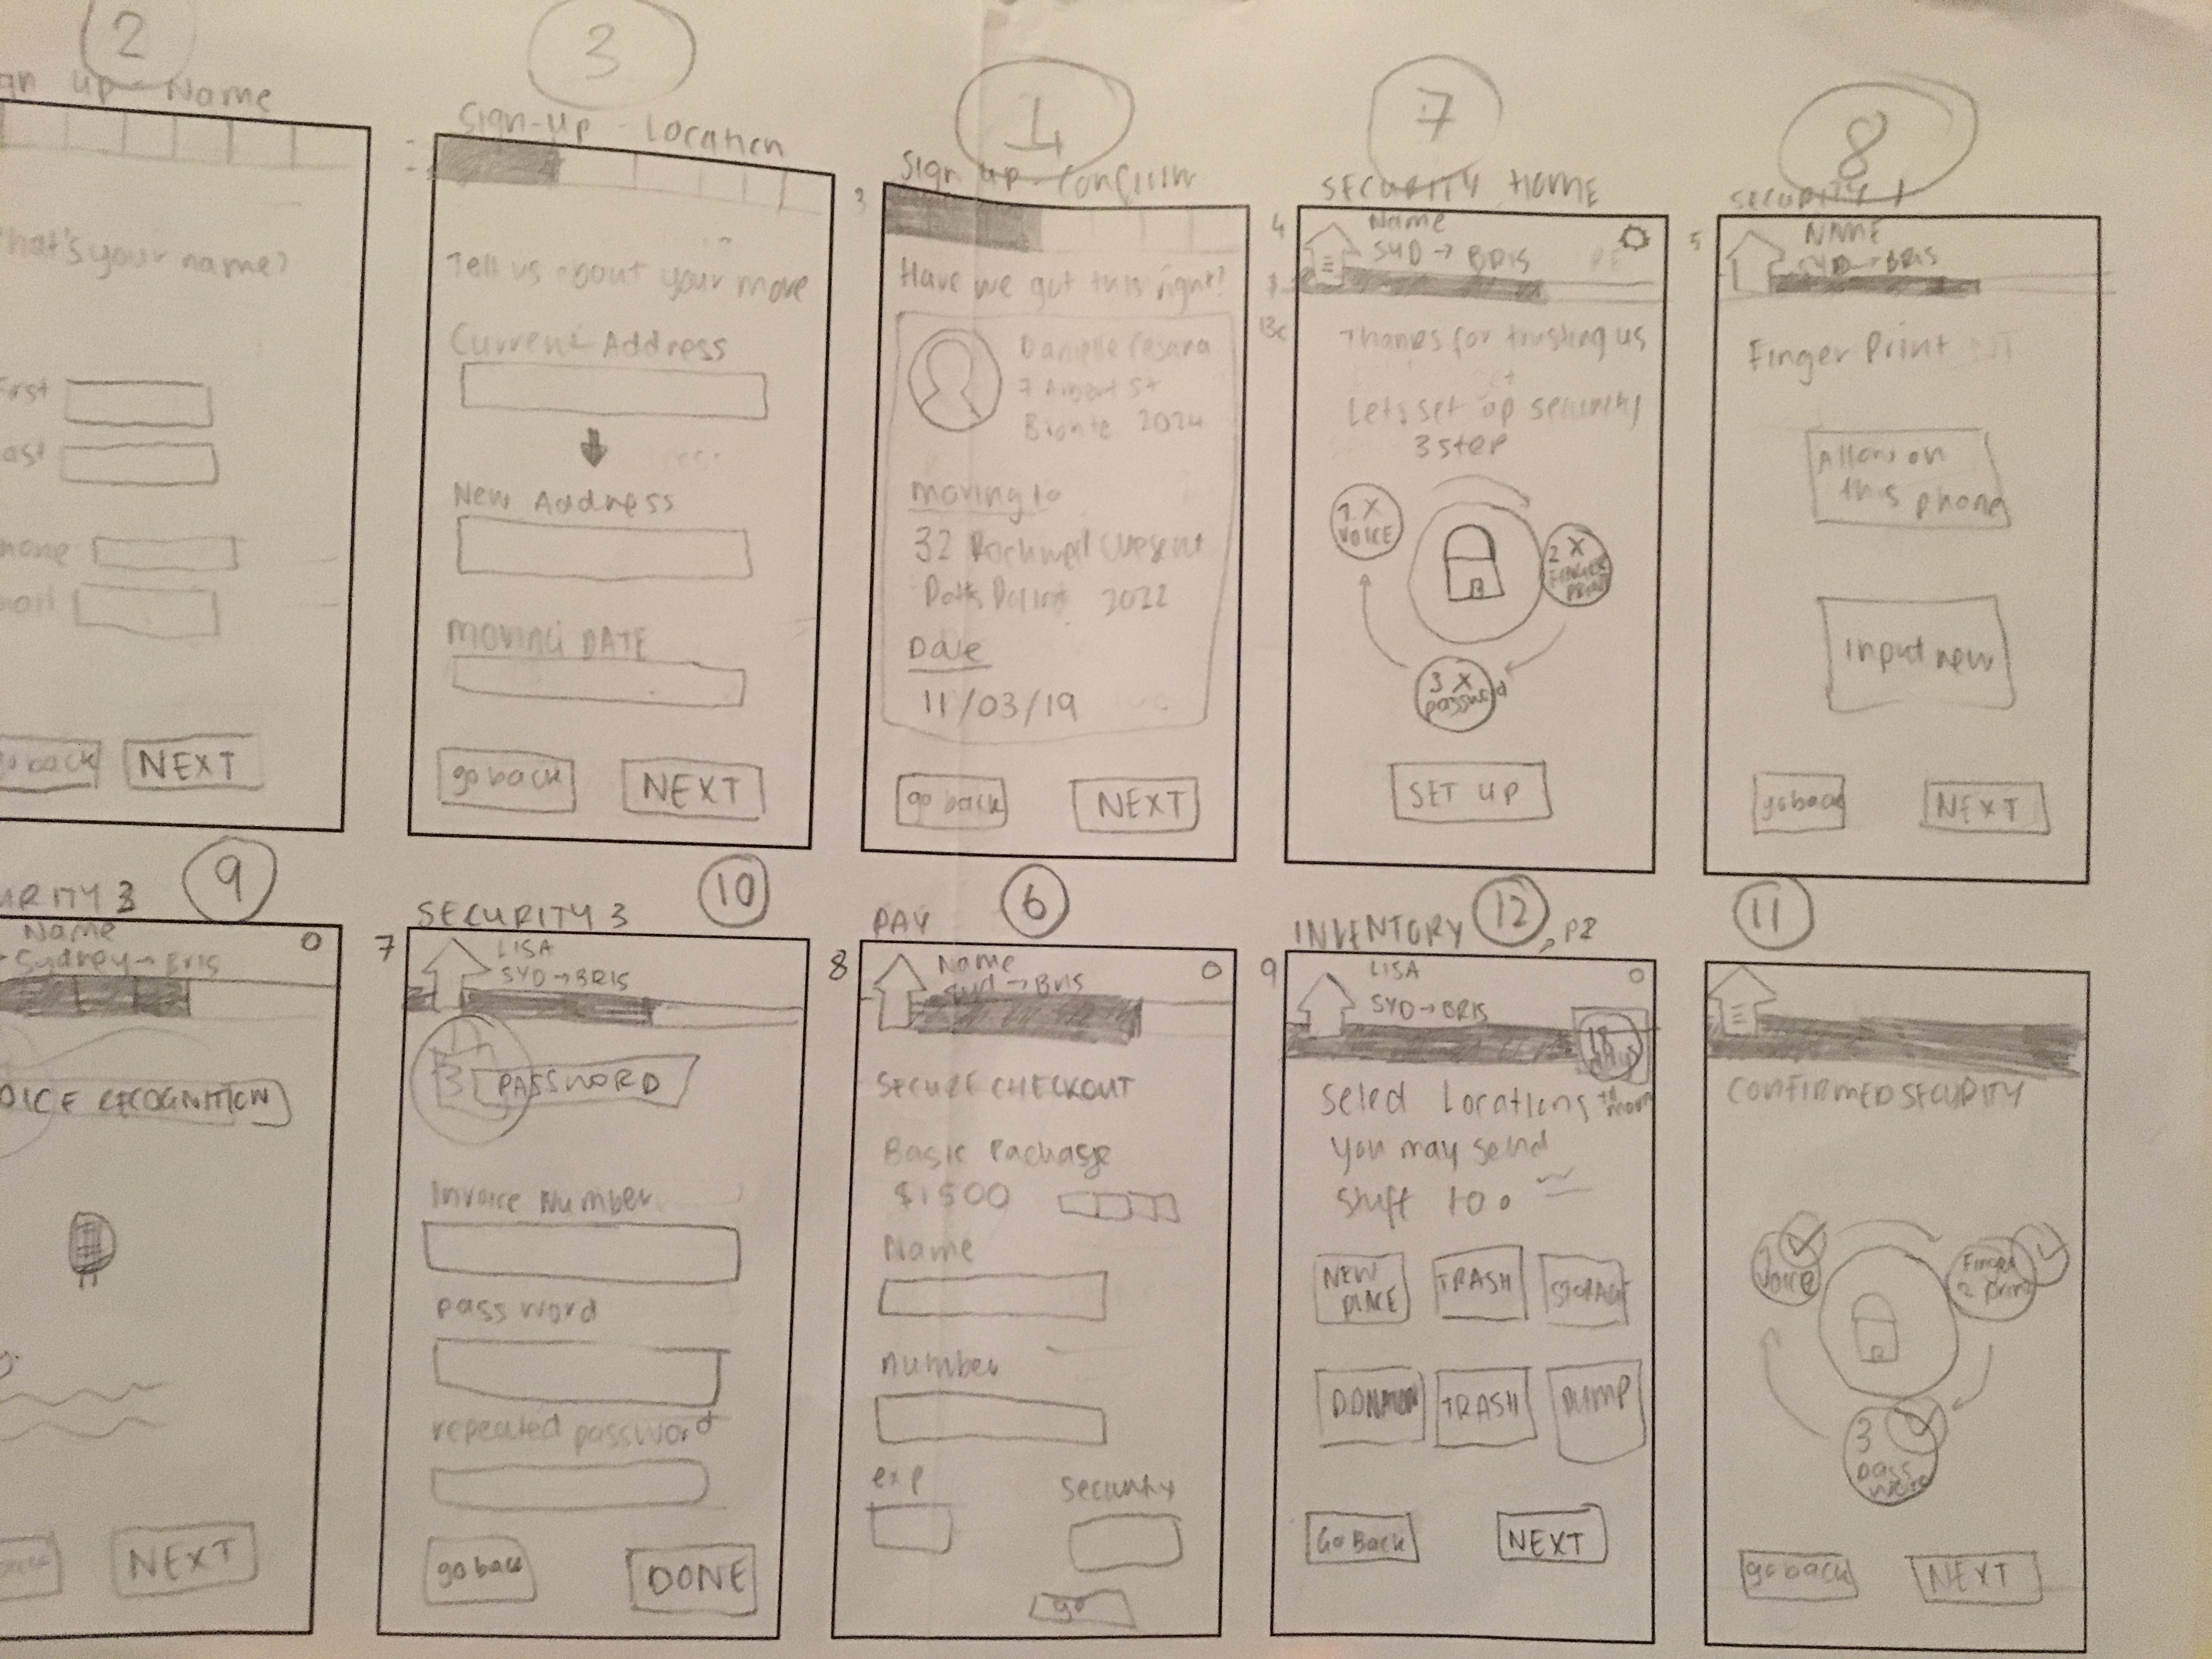 2
up - Name
hat's your name?
First
ast
hone
mail
go back
NEXT
3
Sign-up - Location
Tell us about your move
Current Address
New Address
MOVING DATE
go back
NEXT
Sign up - Confirm
3
Have we got this right?
Danielle
7 Albert St
Bronte 2024
moving to
32 Rockwell Cresent
Potts Point 2022
Date
11/03/19
go back
NEXT
7
SECURITY HOME
4
Name
SYD → BRIS
Thanks for trusting us
Lets set up security
3 step
1 X
VOICE
2 X
FINGER
PRINT
3 X
password
SET UP
8
SECURITY 1
5
NAME
SYD → BRIS
Finger Print
Allow on
this phone
Input new
go back
NEXT
9
URITY 3
Name
Sydney → Bris
OICE RECOGNITION
back
NEXT
10
SECURITY 3
7
LISA
SYD → BRIS
3
PASSWORD
Invoice Number
pass word
repeated password
go back
DONE
6
PAY
8
Name
Syd → Bris
SECURE CHECKOUT
Basic Package
$1500
Name
number
exp
security
go
12
INVENTORY, P2
9
LISA
SYD → BRIS
18
DAYS
to move
Select Locations
you may send
stuff to.
NEW
PLACE
TRASH
STORAGE
DONATION
TRASH
DUMP
Go Back
NEXT
11
CONFIRMED SECURITY
1
voice
Finger
2 print
3
pass
word
go back
NEXT